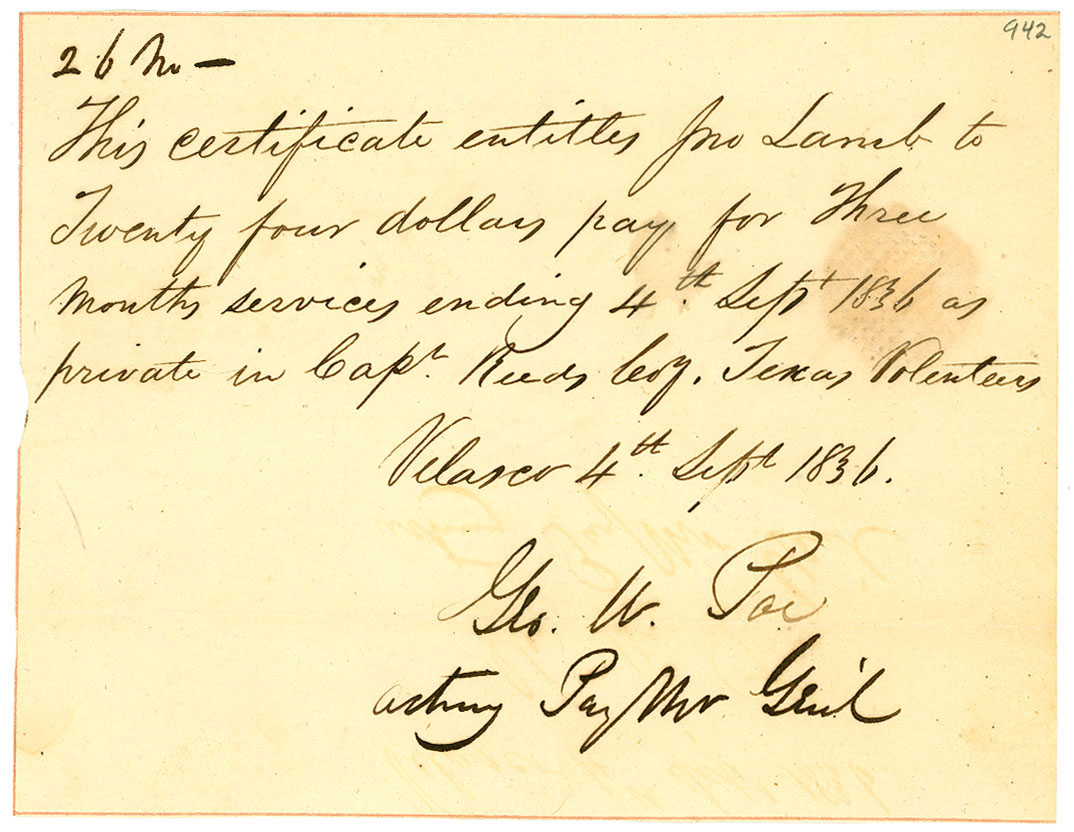 942
26 No —
This certificate entitles Jno Lamb to
Twenty four dollars pay for Three
Months services ending 4th Sept 1836 as
private in Capt. Reeds Coy. Texas Volenteers
Velasco 4th Sept 1836.
Geo. W. Poe
acting Pay Mr Gen'l